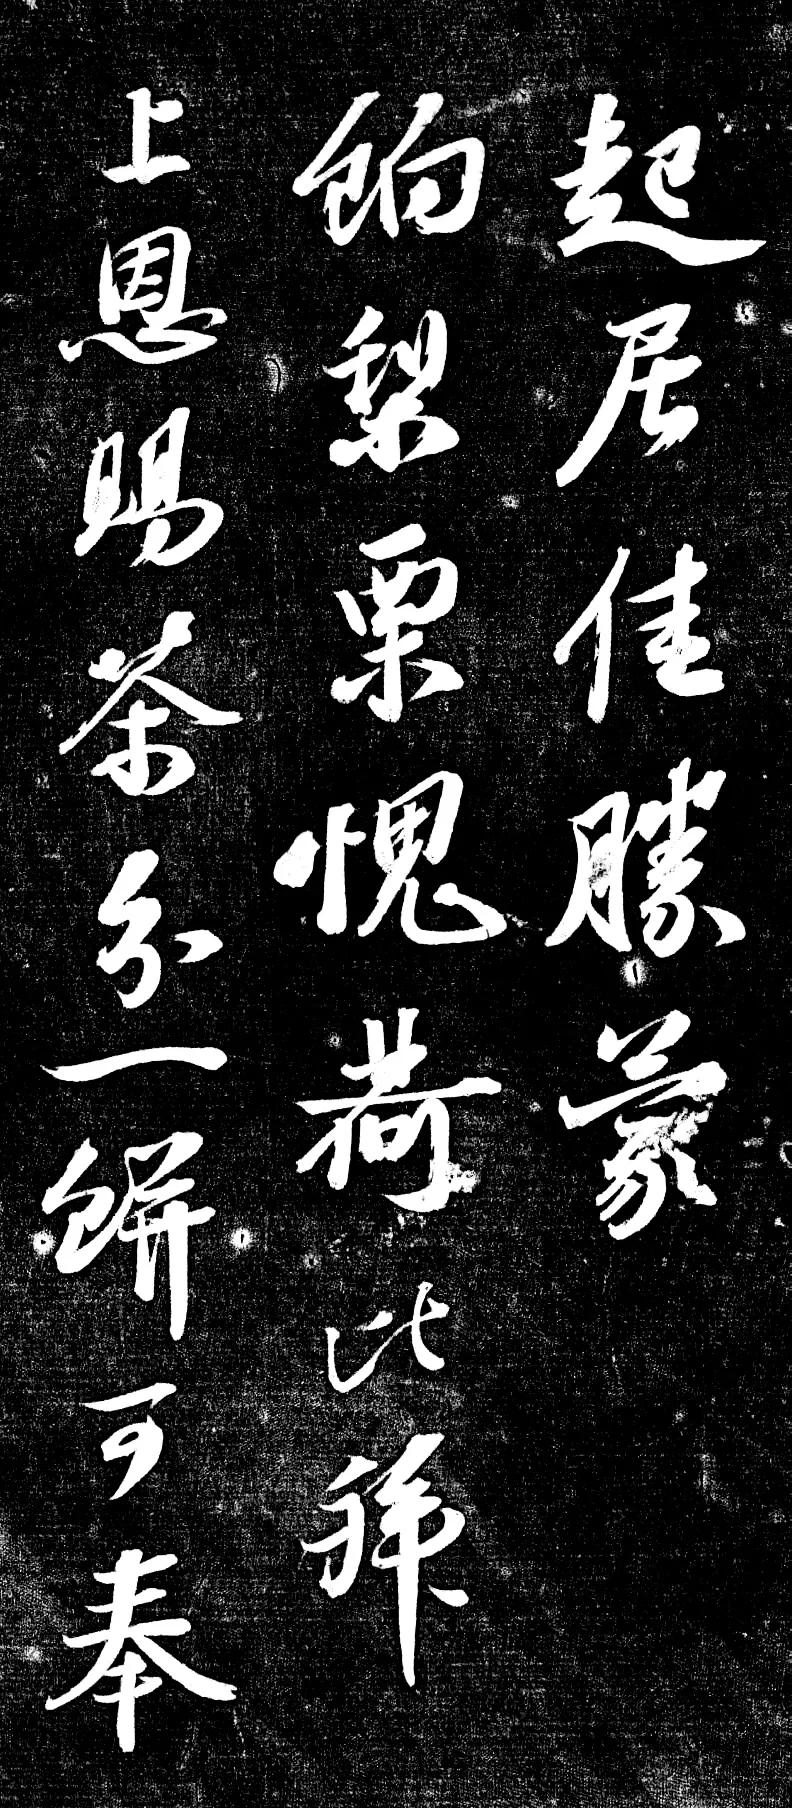 起居佳勝蒙
餉梨栗愧荷比拜
上恩賜茶分一餅可奉